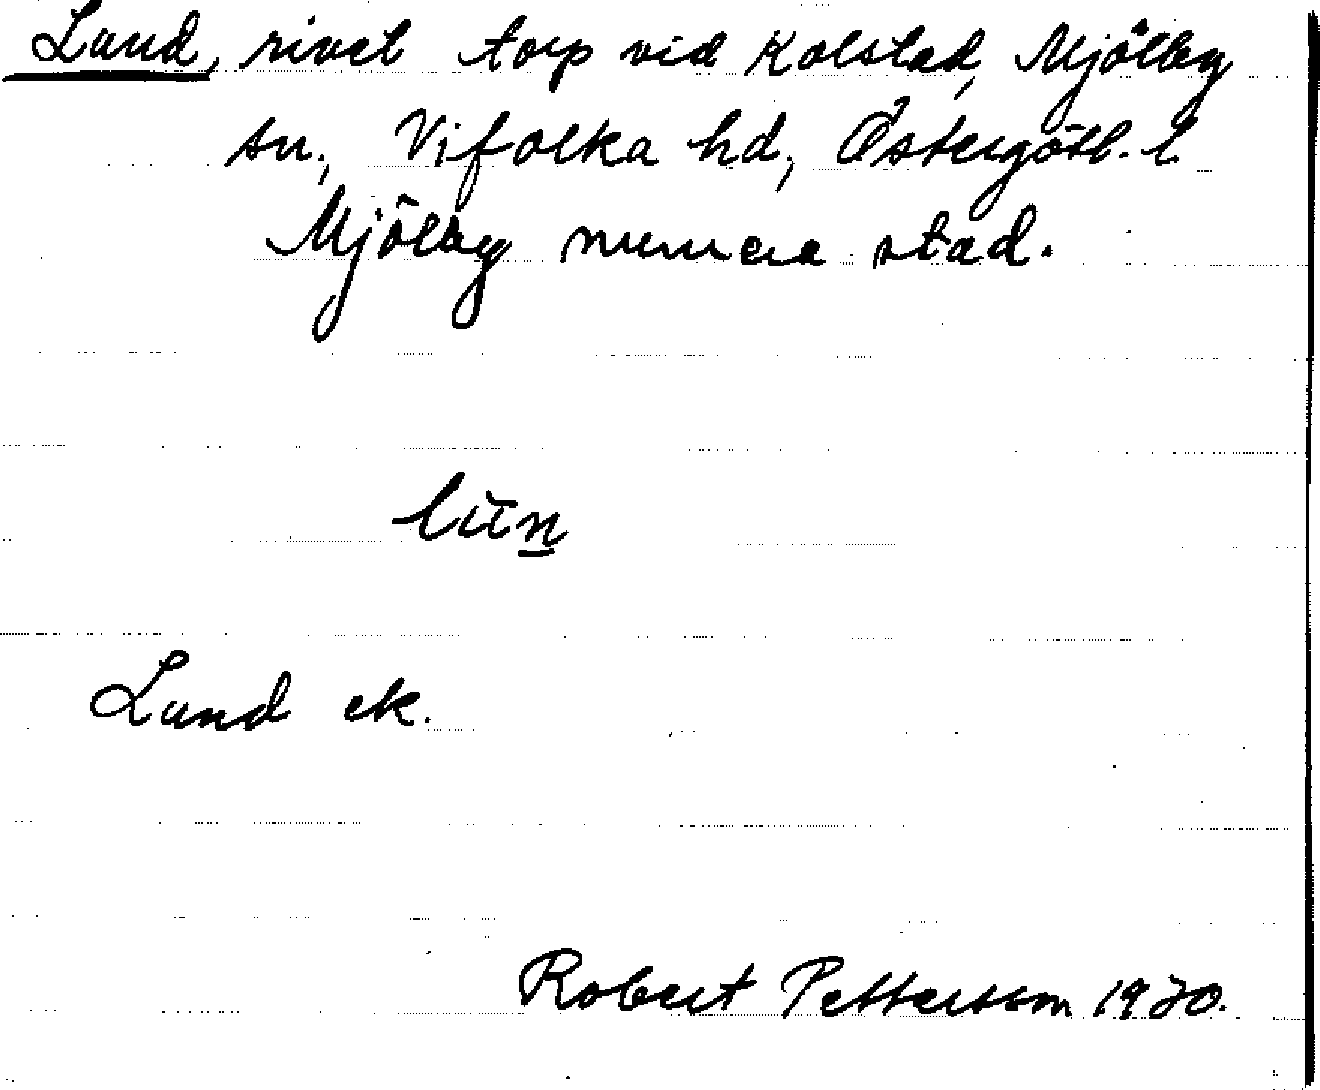 Lund, rivet torp vid Kolstad, Mjölby
sn., Vifolka hd, Östergötl. l.
Mjölby numera stad.
lūn̲
Lund ek.
Robert Pettersson 1920.